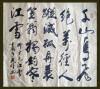 千山鳥飛
絕萬徑人
蹤滅孤舟蓑
笠翁獨釣寒
江雪